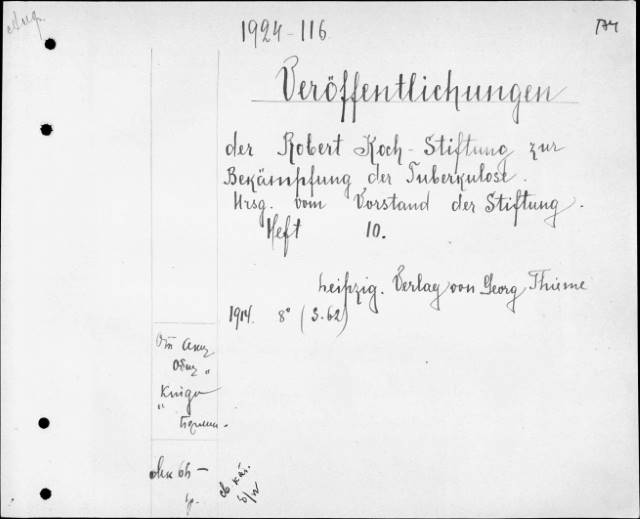 1924-116
Veröffentlichungen
der Robert Koch-Stiftung zur
Bekämpfung der Tuberkulose.
Hrsg. vom Vorstand der Stiftung.
Heft 10.
Leipzig. Verlag von Georg Thieme
1914. 8° (3.62)
От Акц
Общ "
Книга
"